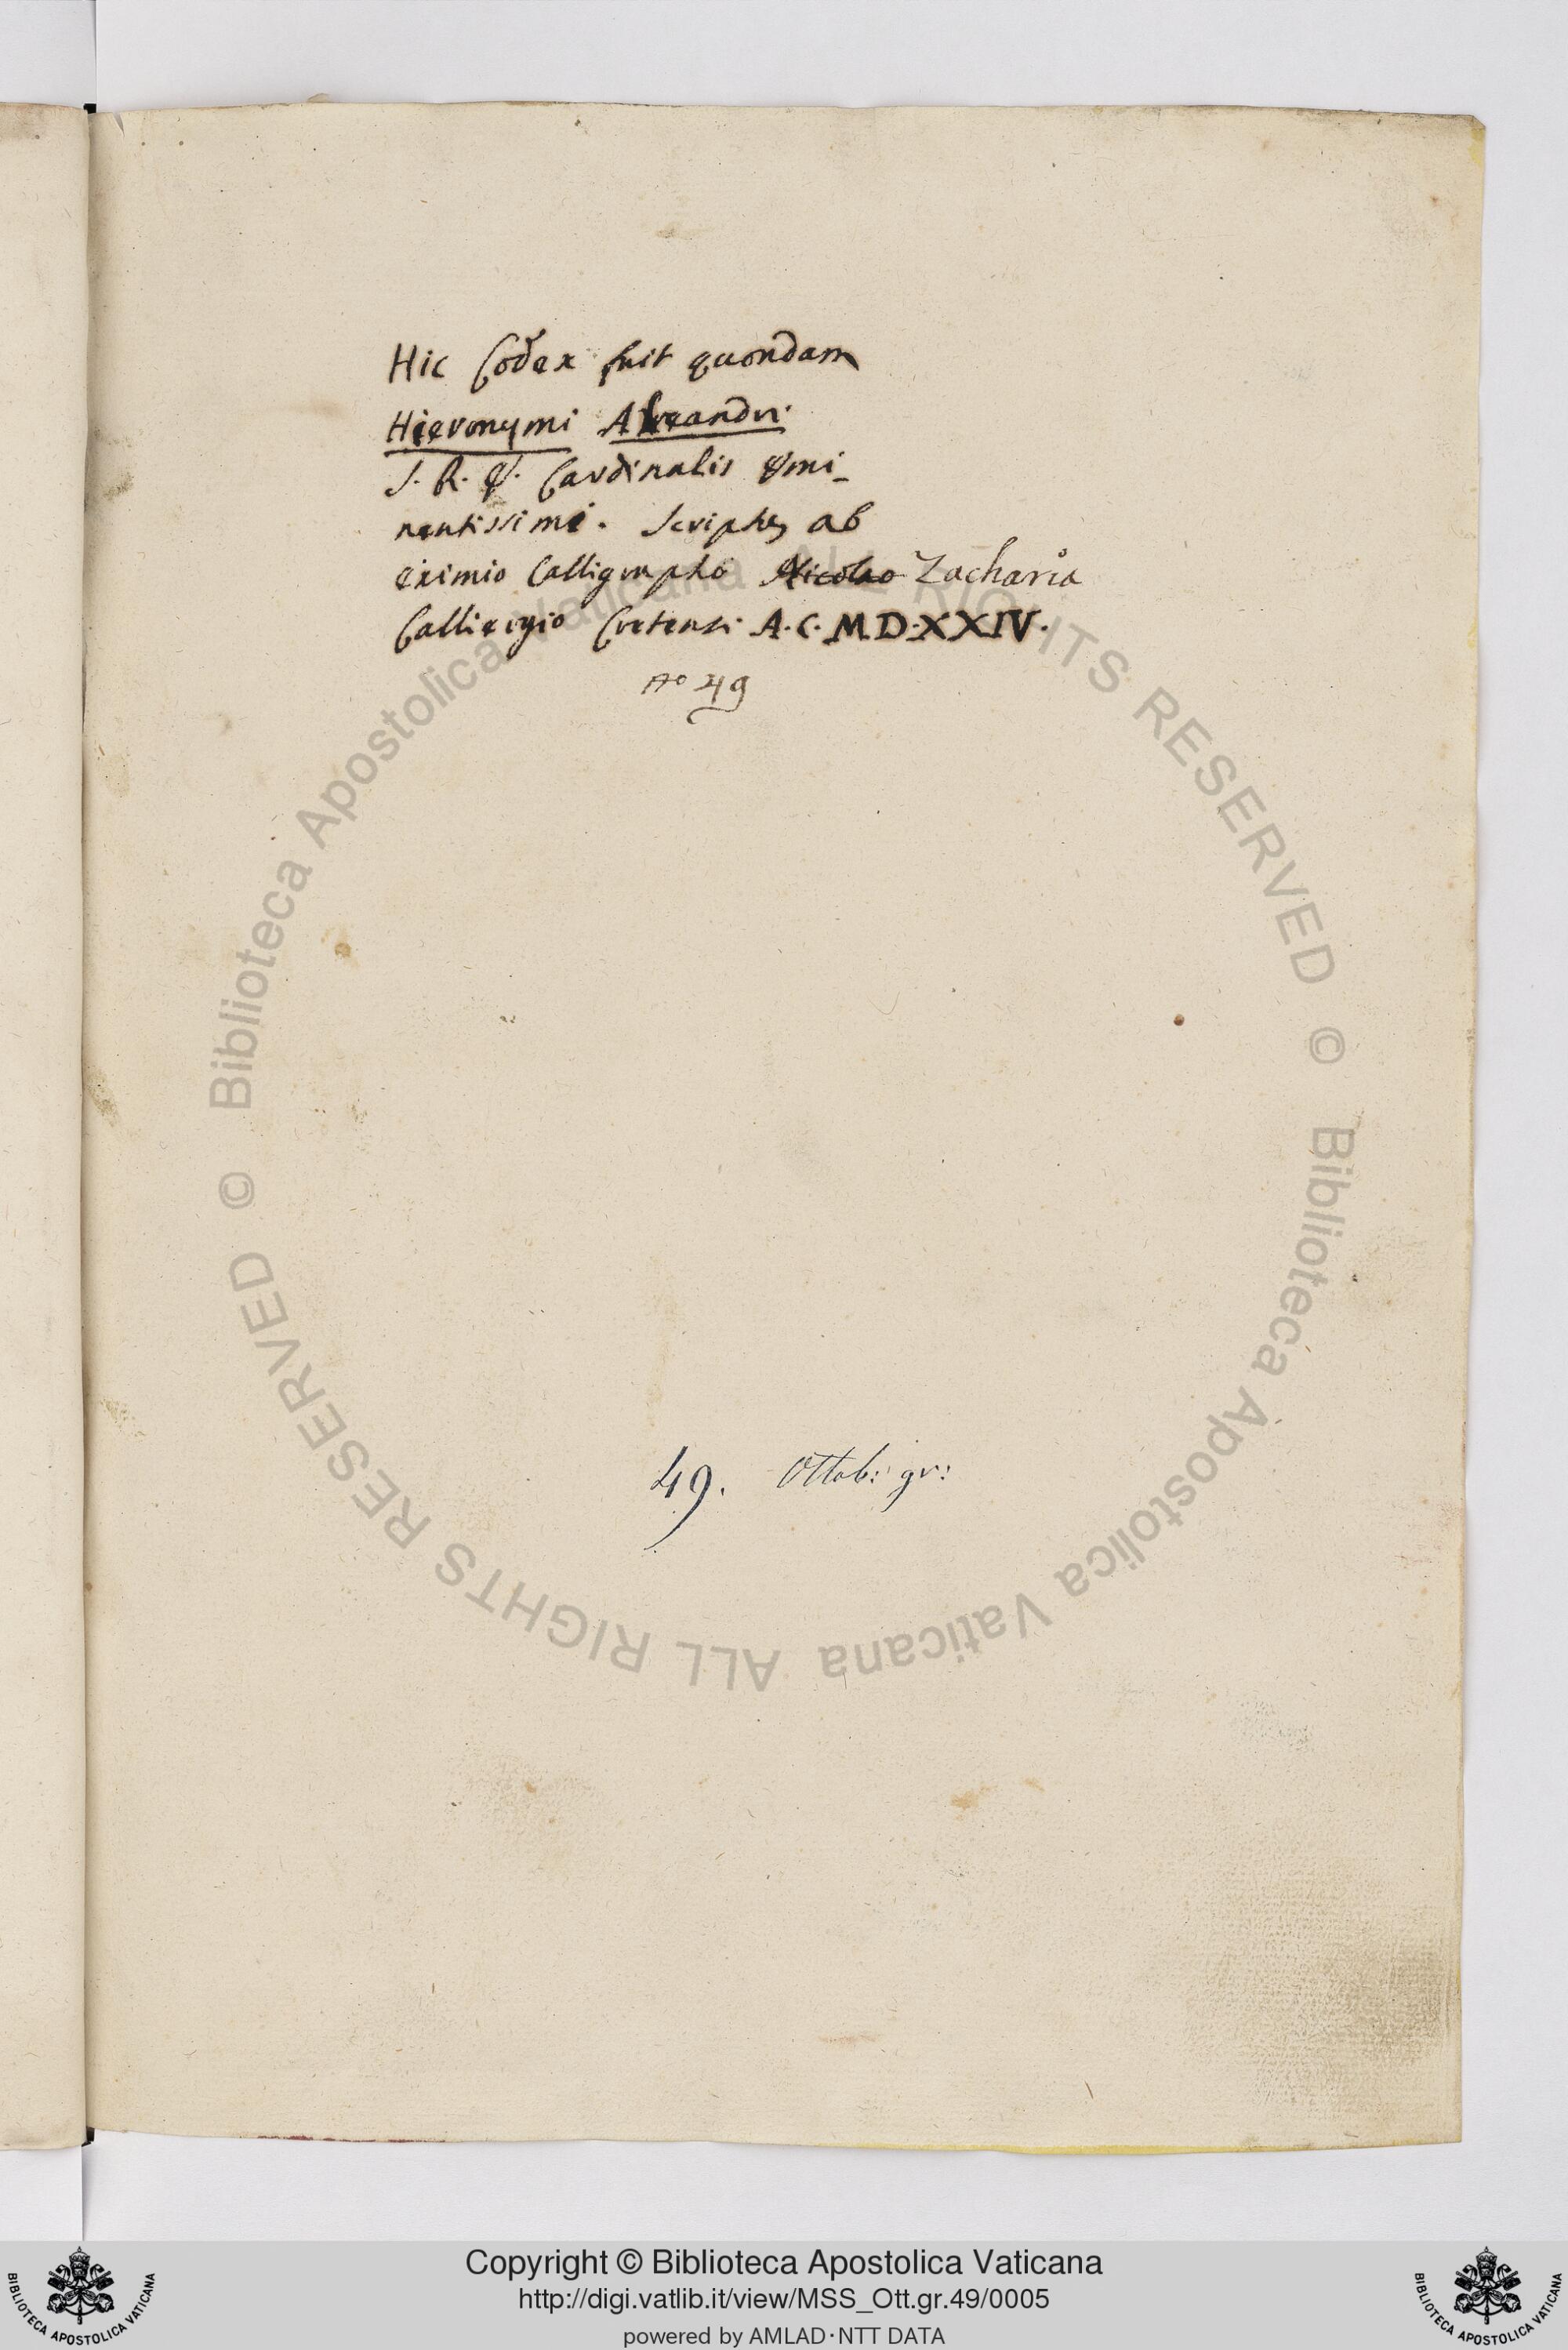 Hic Codex fuit quondam
Hieronymi Aleandri
S. R. E. Cardinalis Emi-
nentissimi. Scriptus ab
eximio Calligrapho Nicolao Zacharia
Calliergio Cretensi A. C. MD.XXIV.
No 49
49. Ottob: gr:
© Biblioteca Apostolica Vaticana ALL RIGHTS RESERVED © Biblioteca Apostolica Vaticana ALL RIGHTS RESERVED
Copyright © Biblioteca Apostolica Vaticana
http://digi.vatlib.it/view/MSS_Ott.gr.49/0005
powered by AMLAD·NTT DATA
BIBLIOTECA APOSTOLICA VATICANA
BIBLIOTECA APOSTOLICA VATICANA